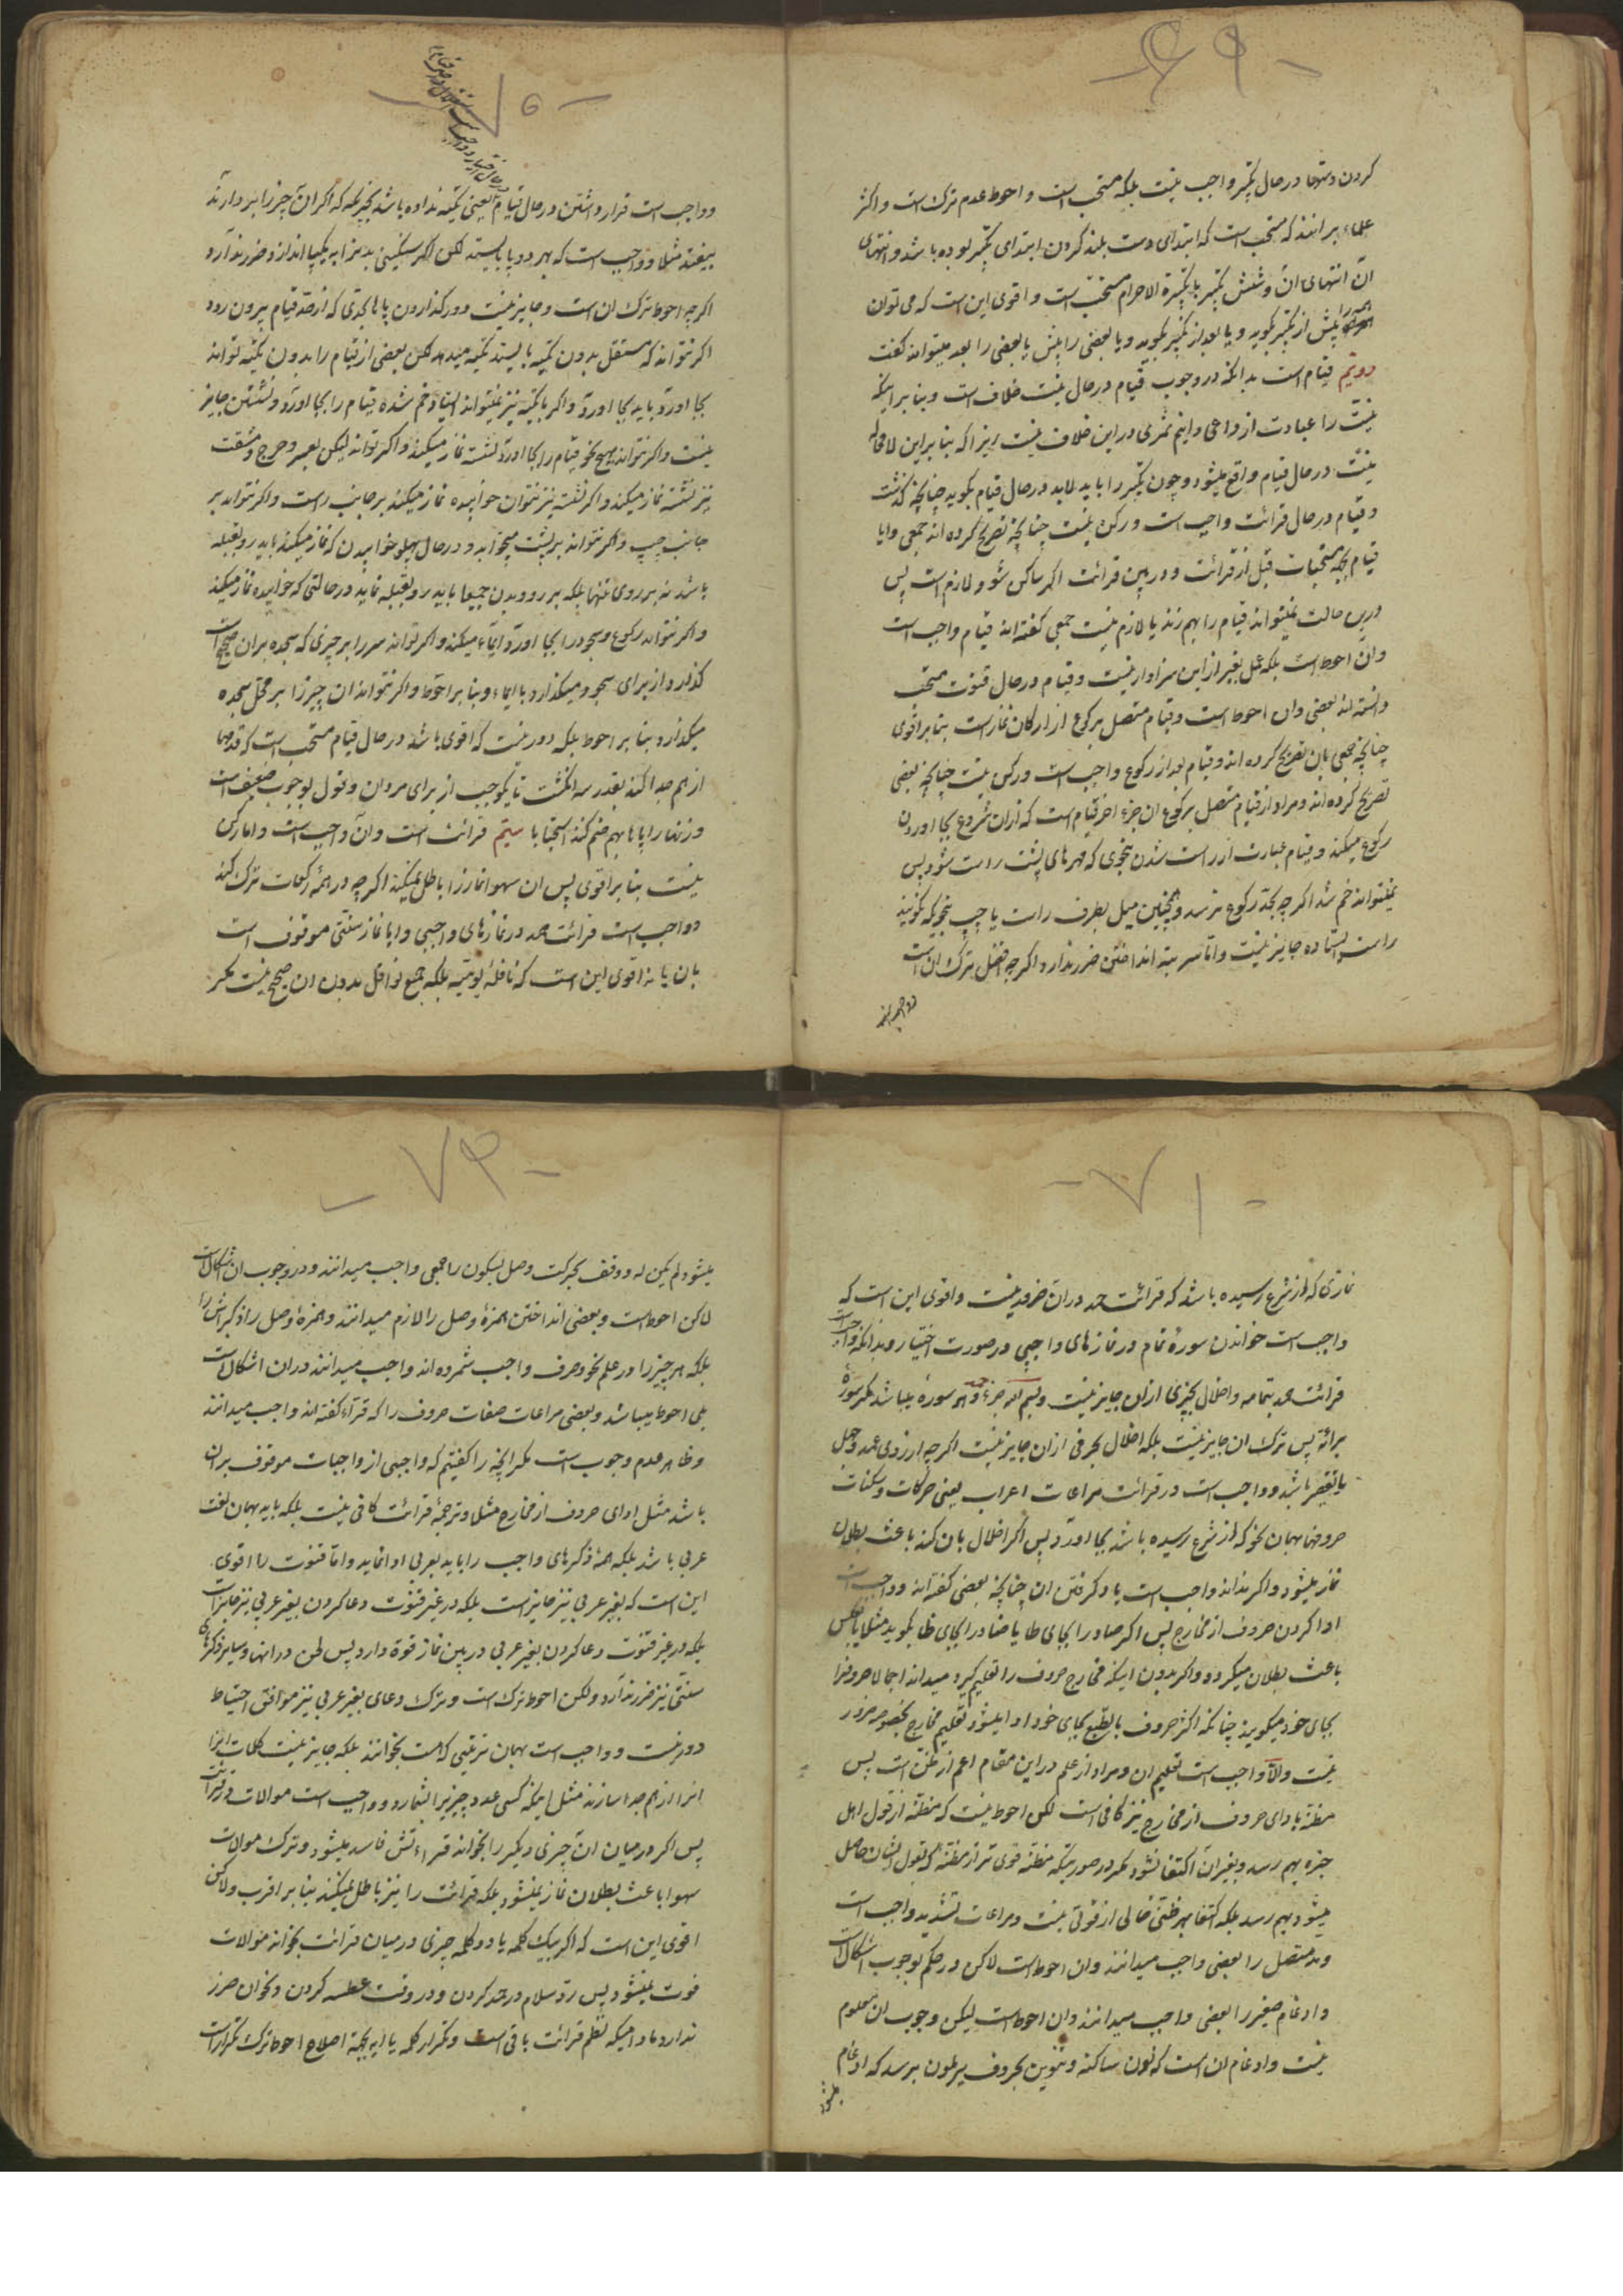 -۶۹-
کردن دستها در حال تکبیر واجب نیست بلکه مستحب است و احوط عدم ترک است و اکثر
علماء برانند که مستحب است که ابتدای دست بلند کردن ابتدای تکبیر بوده باشد و انتهای
آن انتهای ان و شش تکبیر با تکبیرة الاحرام مستحب است و اقوی این است که می توان
همه را پیش از تکبیر بگوید و یا بعد از تکبیر بگوید و یا بعضی را پیش یا بعضی را بعد میتواند گفت
دویم قیام است بدانکه در وجوب قیام در حال نیت خلاف است و بنا بر اینکه
نیت را عبادت از داعی دانیم ثمری در این خلاف نیست زیرا که بنا بر این لامحاله
نیت در حال قیام واقع میشود و چون تکبیر را باید لابد در حال قیام بگوید چنانچه گذشت
و قیام در حال قرائت واجب است و رکن نیست چنانچه تصریح کرده اند جمعی و ایا
قیام بجهة مستحبات قبل از قرائت و در بین قرائت اگر ساکن شود لازم است پس
درین حالت میتواند قیام را بهم زند یا لازم نیست جمعی گفته اند قیام واجب است
و ان احوط است بلکه عمل بغیر از این سزاوار نیست و قیام در حال قنوت مستحب
دانسته اند بعضی و ان احوط است و قیام متصل برکوع از ارکان نماز است بنا بر اقوی
چنانچه جمعی بان تصریح کرده اند و قیام بعد از رکوع واجب است و رکن نیست چنانچه بعضی
تصریح کرده اند و مراد از قیام متصل برکوع ان جزء اخر قیام است که ازان شروع بجا اوردن
رکوع میکند و قیام عبارت از راست شدن بنحوی که مهرهای پشت راست شود پس
نمیتواند خم شد اگر چه بحد رکوع نرسد و همچنین میل بطرف راست یا چپ بنحویکه نگویند
راست ایستاده جایز نیست و اما سر بته انداختن ضرر ندارد اگر چه افضل ترک ان است
و واجب است
-۷۰-
و واجب است قرار داشتن در حال قیام یعنی تکیه نداده باشد بچیزیکه که اگر ان چیز را بردارند
بیفتد مثلا و واجب است که بهر دو پا بایستد لکن اگر سنگینی بدنرا به یکپا اندازد ضرر ندارد
اگر چه احوط ترک ان است و جایز نیست دور گذاردن پاها بحدی که از صدق قیام بیرون رود
اگر نتواند که مستقل بدون تکیه بایستد تکیه میدهد لکن بعضی از قیام را بدون تکیه تواند
بجا اورد باید بجا اورد و اگر با تکیه نیز نمیتواند ایستاد خم شده قیام را بجا اورد و نشستن جایز
نیست و اگر نتواند بهیچ نحو قیام را بجا اورد نشسته نماز میکند و اگر تواند لیکن بعسر و حرج و مشقت
نیز نشسته نماز میکند و اگر نشسته نیز نتوان خوابیده نماز میکند بر جانب راست و اگر نتواند بر
جانب چپ و اگر نتواند بر پشت میخوابد و در حال پهلو خوابیدن که نماز میکند باید رو بقبله
باشد نه بر روی تنها بلکه بر رو و بدن جمیعا باید رو بقبله نماید در حالتی که خوابیده نماز میکند
و اگر نتواند رکوع و سجود را بجا اورد ایماء میکند و اگر تواند سر را بر چیزی که سجده بران صحیح است
گذارد از برای سجود میگذارد با ایماء و بنا بر احوط و اگر نتواند ان چیز را بر محل سجده
میگذارد بنا بر احوط بلکه دور نیست که اقوی باشد در حال قیام مستحب است که قدمها
از هم جدا کند بقدر سه انگشت تا یکوجب از برای مردان و قول بوجوب ضعیف است
و زنها را پاها بهم ضم کند استحبابا سیّم قرائت است و ان واجب است و اما رکن
نیست بنا بر اقوی پس ان سهوا نماز را باطل نمیکند اگر چه در همۀ رکعات ترک کند
و واجب است قرائت حمد در نمازهای واجبی و ایا نماز سنّتی موقوف است
بان یا نه اقوی این است که نافلۀ یومیّه بلکه جمیع نوافل بدون ان صحیح نیست مگر
-۷۱-
نمازی که از شرع رسیده باشد که قرائت حمد دران ضرور نیست و اقوی این است که
واجب است خواندن سورۀ تمام در نمازهای واجبی در صورت اختیار و بدانکه واجب است
قرائت حمد بتمامه و اخلال بچیزی ازان جایز نیست و بسم الله جزء حمد و هر سوره میباشد مگر سورۀ
برائة پس ترک ان جایز نیست بلکه اخلال بحرفی ازان جایز نیست اگر چه از روی عمد و جهل
با تقصیر باشد و واجب است در قرائت مراعات اعراب یعنی حرکات و سکنات
حروفها بهمان نحو که از شرع رسیده باشد بجا اورد پس اگر اخلال بان کند باعث بطلان
نماز میشود و اگر نداند واجب است یاد گرفتن ان چنانچه بعضی گفته اند و واجب است
ادا کردن حروف از مخارج پس اگر صاد را بجای طا یا ضاد را بجای ظا بگوید مثلا یا بعکس
باعث بطلان میگردد و اگر بدون اینکه مخارج حروف را تعلیم گیرد میداند اجمالا حروفرا
بجای خود میگویند چنانکه اکثر حروف بالطبع بجای خود ادا میشود تعلیم مخارج بخصوصه ضرور
نیست والا واجب است تعلیم ان و مراد از علم در این مقام اعم از ظن است پس
مظنّه بادای حروف از مخارج نیز کافی است لکن احوط نیست که مظنّه از قول اهل
خبره بهم رسد و بغیر ان اکتفا نشود مگر در صورتیکه مظنّه قوی تر از مظنّه که بقول ایشان حاصل
میشود بهم رسد بلکه اکتفا بهر ظنی خالی از قوتی نیست و مراعات تشدید واجب است
و مد متصل را بعضی واجب میدانند و ان احوط است لاکن در حکم بوجوب اشکال است
و ادغام صغیر را بعضی واجب میدانند و ان احوط است لیکن وجوب ان معلوم
نیست و ادغام ان است که نون ساکنه و تنوین بحروف یرملون برسد که ادغام
میشود
-۷۲-
میشود لم یکن له و وقف بحرکت و وصل بسکون را جمعی واجب میدانند و در وجوب ان اشکال است
لاکن احوط است و بعضی انداختن همزۀ وصل را لازم میدانند و همزۀ وصل را ذکرش را
بلکه هر چیز را در علم نحو و صرف واجب شمرده اند واجب میدانند دران اشکال است
بلی احوط میباشد و بعضی مراعات صفات حروف را که قرّاء گفته اند واجب میدانند
و ظاهر عدم وجوب است مگر انچه را گفتیم که واجبی از واجبات موقوف بران
باشد مثل ادای حروف از مخارج مثلا و ترجمۀ قرائت کافی نیست بلکه باید بهمان لغت
عربی باشد بلکه همۀ ذکرهای واجب را باید بعربی ادا نماید و اما قنوت را اقوی
این است که بغیر عربی نیز جایز است بلکه در غیر قنوت دعا کردن بغیر عربی نیز جایز است
بلکه در غیر قنوت دعا کردن بغیر عربی در بین نماز قوة دارد پس لحن در انها و سایر ذکرهای
سنّتی نیز ضرر ندارد ولکن احوط ترک است و ترک دعای بغیر عربی نیز موافق احتیاط
دور نیست و واجب است بهمان ترتیبی که هست بخوانند بلکه جایز نیست کلمات انرا
انرا از هم جدا سازند مثل اینکه کسی عدد چیزیرا شمارد و واجب است موالات در قرائت
پس اگر در میان ان چیزی دیگر را بخواند قراءتش فاسد میشود و ترک موالات
سهوا باعث بطلان نماز نمیشود بلکه قرائت را نیز باطل نمیکند بنا بر اقرب و لاکن
اقوی این است که اگر بیک کلمه یا دو کلمه چیزی در میان قرائت بخواند موالات
فوت نمیشود پس ردّ سلام و حمد کردن و در وقت عطسه کردن و نحو ان ضرر
ندارد مادامیکه نظم قرائت باقی است و تکرار کلمه یا ایه بجهة اصلاح احوط ترک تکرار است